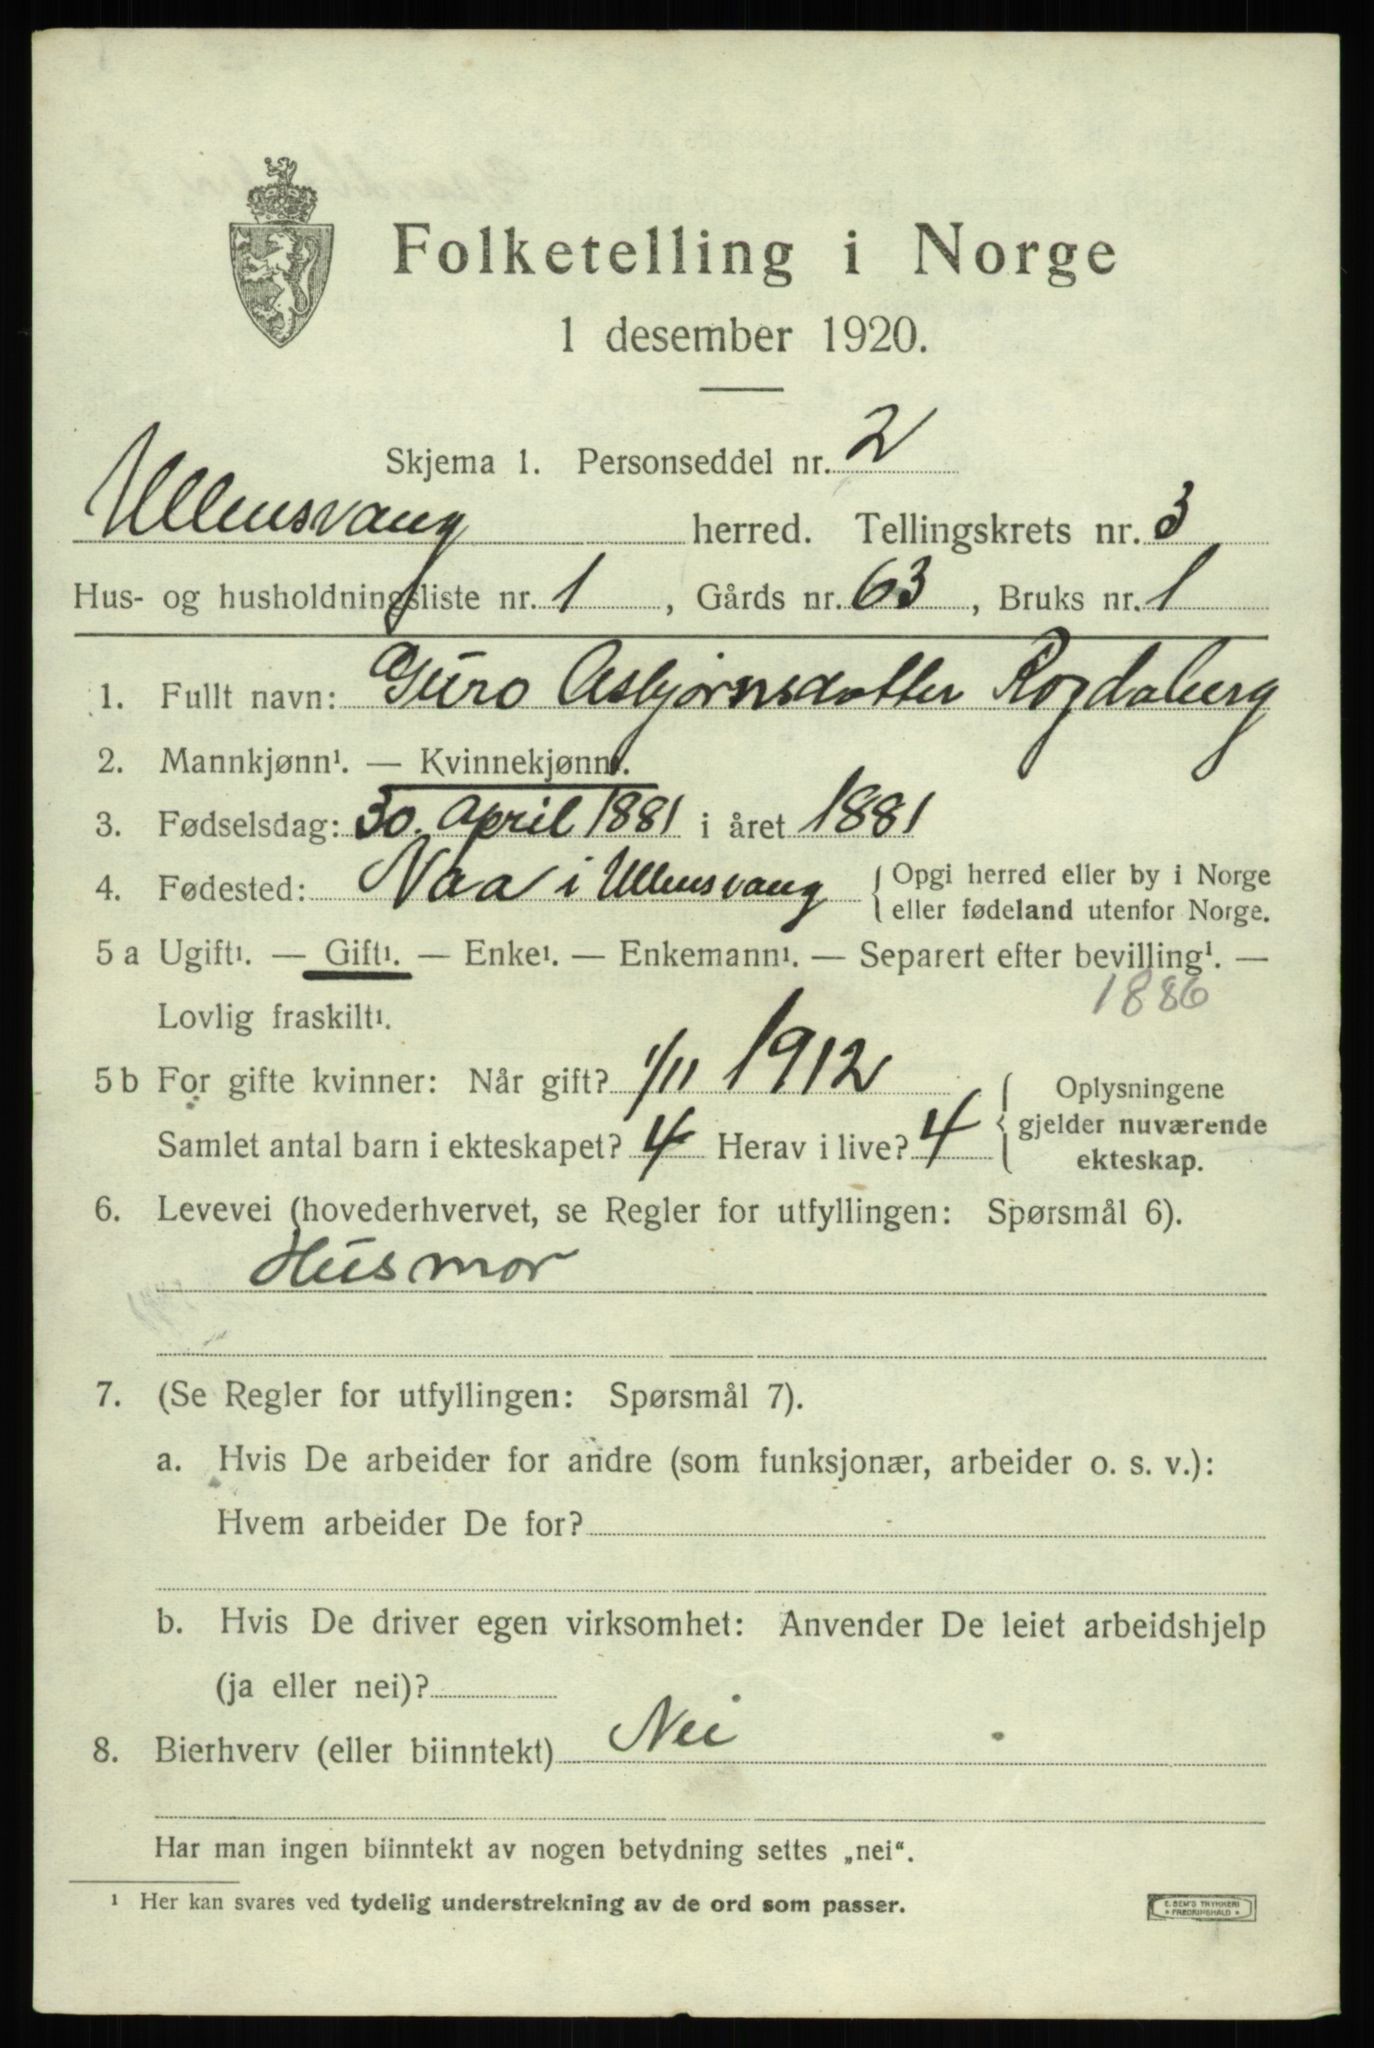 Folketelling i Norge
1 desember 1920.
Skjema 1. Personseddel nr. 2
Ullensvang herred. Tellingskrets nr. 3
Hus- og husholdningsliste nr. 1, Gårds nr. 63, Bruks nr. 1
1. Fullt navn: Guro Asbjørnsdotter Rogdaberg
2. Mannkjønn¹. — Kvinnekjønn¹.
3. Fødselsdag: 30. April 1881 i året 1881
4. Fødested: Naa i Ullensvang { Opgi herred eller by i Norge
eller fødeland utenfor Norge.
5 a Ugift¹. — Gift¹. — Enke¹. — Enkemann¹. — Separert efter bevilling¹. —
1886
Lovlig fraskilt¹.
5 b For gifte kvinner: Når gift? 1/11 1912 { Oplysningene
Samlet antal barn i ekteskapet? 4 Herav i live? 4 gjelder nuværende
ekteskap.
6. Levevei (hovederhvervet, se Regler for utfyllingen: Spørsmål 6).
Husmor
7. (Se Regler for utfyllingen: Spørsmål 7).
a. Hvis De arbeider for andre (som funksjonær, arbeider o. s. v.):
Hvem arbeider De for?
b. Hvis De driver egen virksomhet: Anvender De leiet arbeidshjelp
(ja eller nei)?
8. Bierhverv (eller biinntekt) Nei
Har man ingen biinntekt av nogen betydning settes „nei“.
¹ Her kan svares ved tydelig understrekning av de ord som passer.
E. SEM'S TRYKKERI
* FREDRIKSHALD *